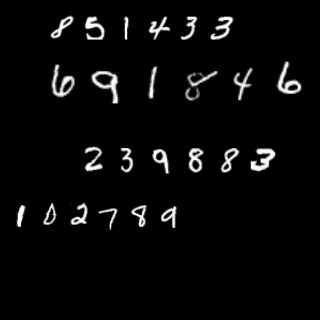 851433
691846
239883
102789